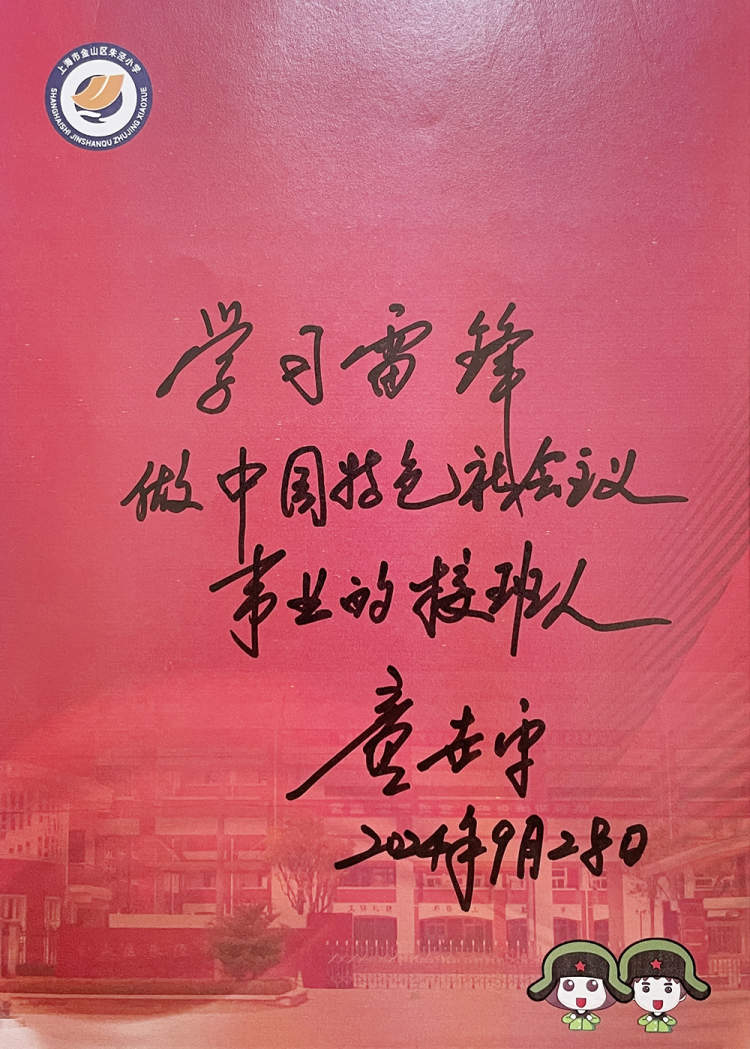 上海市金山区朱泾小学
SHANGHAISHI JINSHANQU ZHUJING XIAOXUE
学习雷锋
做中国特色社会主义
事业的接班人
童世平
2024年9月28日